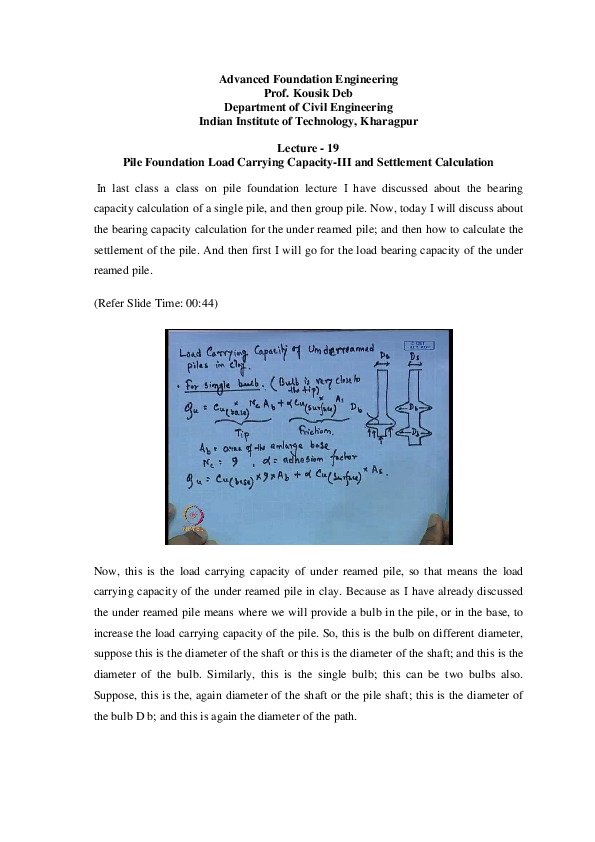 Advanced Foundation Engineering
Prof. Kousik Deb
Department of Civil Engineering
Indian Institute of Technology, Kharagpur
Lecture - 19
Pile Foundation Load Carrying Capacity-III and Settlement Calculation
In last class a class on pile foundation lecture I have discussed about the bearing
capacity calculation of a single pile, and then group pile. Now, today I will discuss about
the bearing capacity calculation for the under reamed pile; and then how to calculate the
settlement of the pile. And then first I will go for the load bearing capacity of the under
reamed pile.
(Refer Slide Time: 00:44)
Load Carrying Capacity of Underreamed
piles in clay.
• For single bulb. (Bulb is very close to
the tip)
Qu = Cu(base) × Nc Ab + α Cu(surface) × As
Tip Friction
Ab = area of the enlarge base
Nc = 9, α = adhesion factor
Qu = Cu(base) × 9 × Ab + α Cu(surface) × As.
Ds Ds
Db Db
Db
Now, this is the load carrying capacity of under reamed pile, so that means the load
carrying capacity of the under reamed pile in clay. Because as I have already discussed
the under reamed pile means where we will provide a bulb in the pile, or in the base, to
increase the load carrying capacity of the pile. So, this is the bulb on different diameter,
suppose this is the diameter of the shaft or this is the diameter of the shaft; and this is the
diameter of the bulb. Similarly, this is the single bulb; this can be two bulbs also.
Suppose, this is the, again diameter of the shaft or the pile shaft; this is the diameter of
the bulb D b; and this is again the diameter of the path.